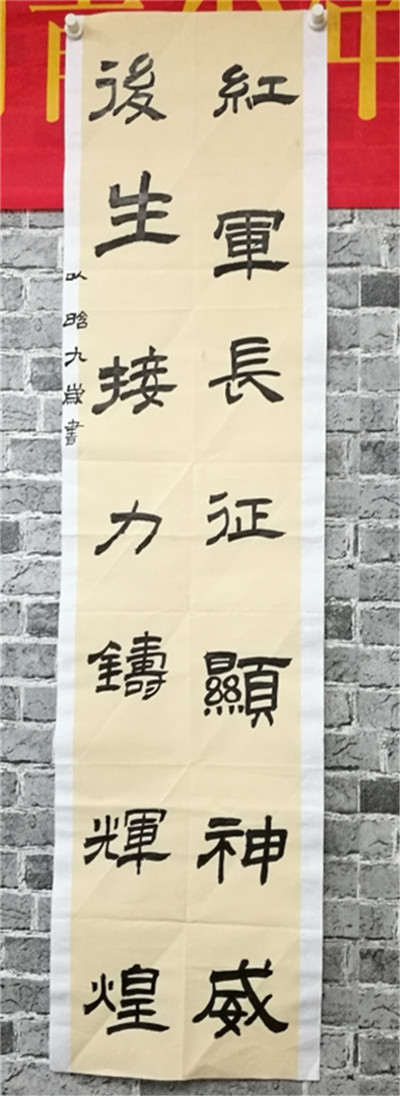 紅軍長征顯神威
後生接力鑄輝煌
以晗九歲書